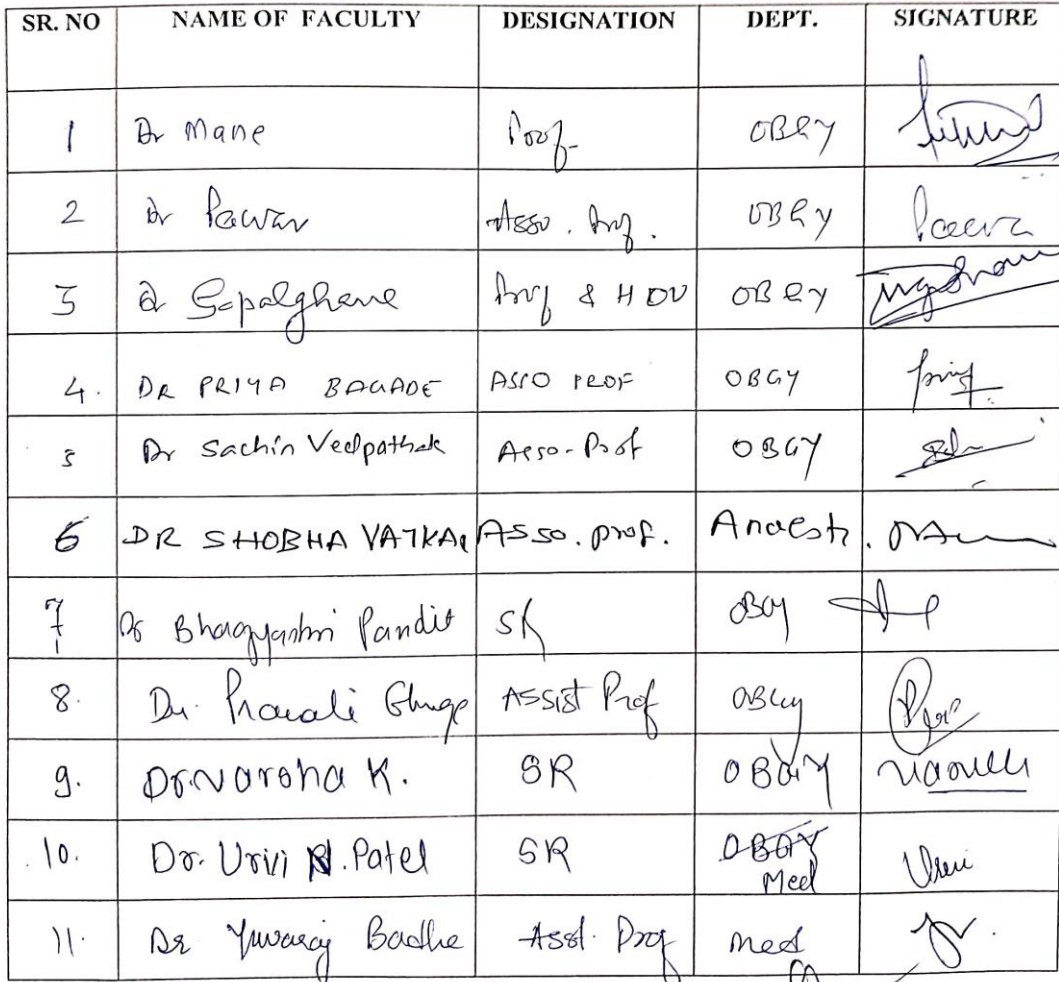 SR. NO NAME OF FACULTY DESIGNATION DEPT. SIGNATURE
1 Dr Mane Prof. OBGY
2 Dr Pawar Asso. Prof. OBGY
3 Dr Gopalghare Prof & HOD OBGY
4. DR PRIYA BAGADE ASSO PROF OBGY
5 Dr Sachin Vedpathak Asso-Prof OBGY
6 DR SHOBHA Asso. prof. Anaesth.
7 Dr Bhagyashri Pandit SR OBGY
8. Dr. Pravali Ghuge Assist Prof OBGY
9. Dr. Varsha K. SR OBGY
10. Dr. Urvi N. Patel SR OBGY
Med
11. Dr Yuvaraj Badhe Asst. Prof Med